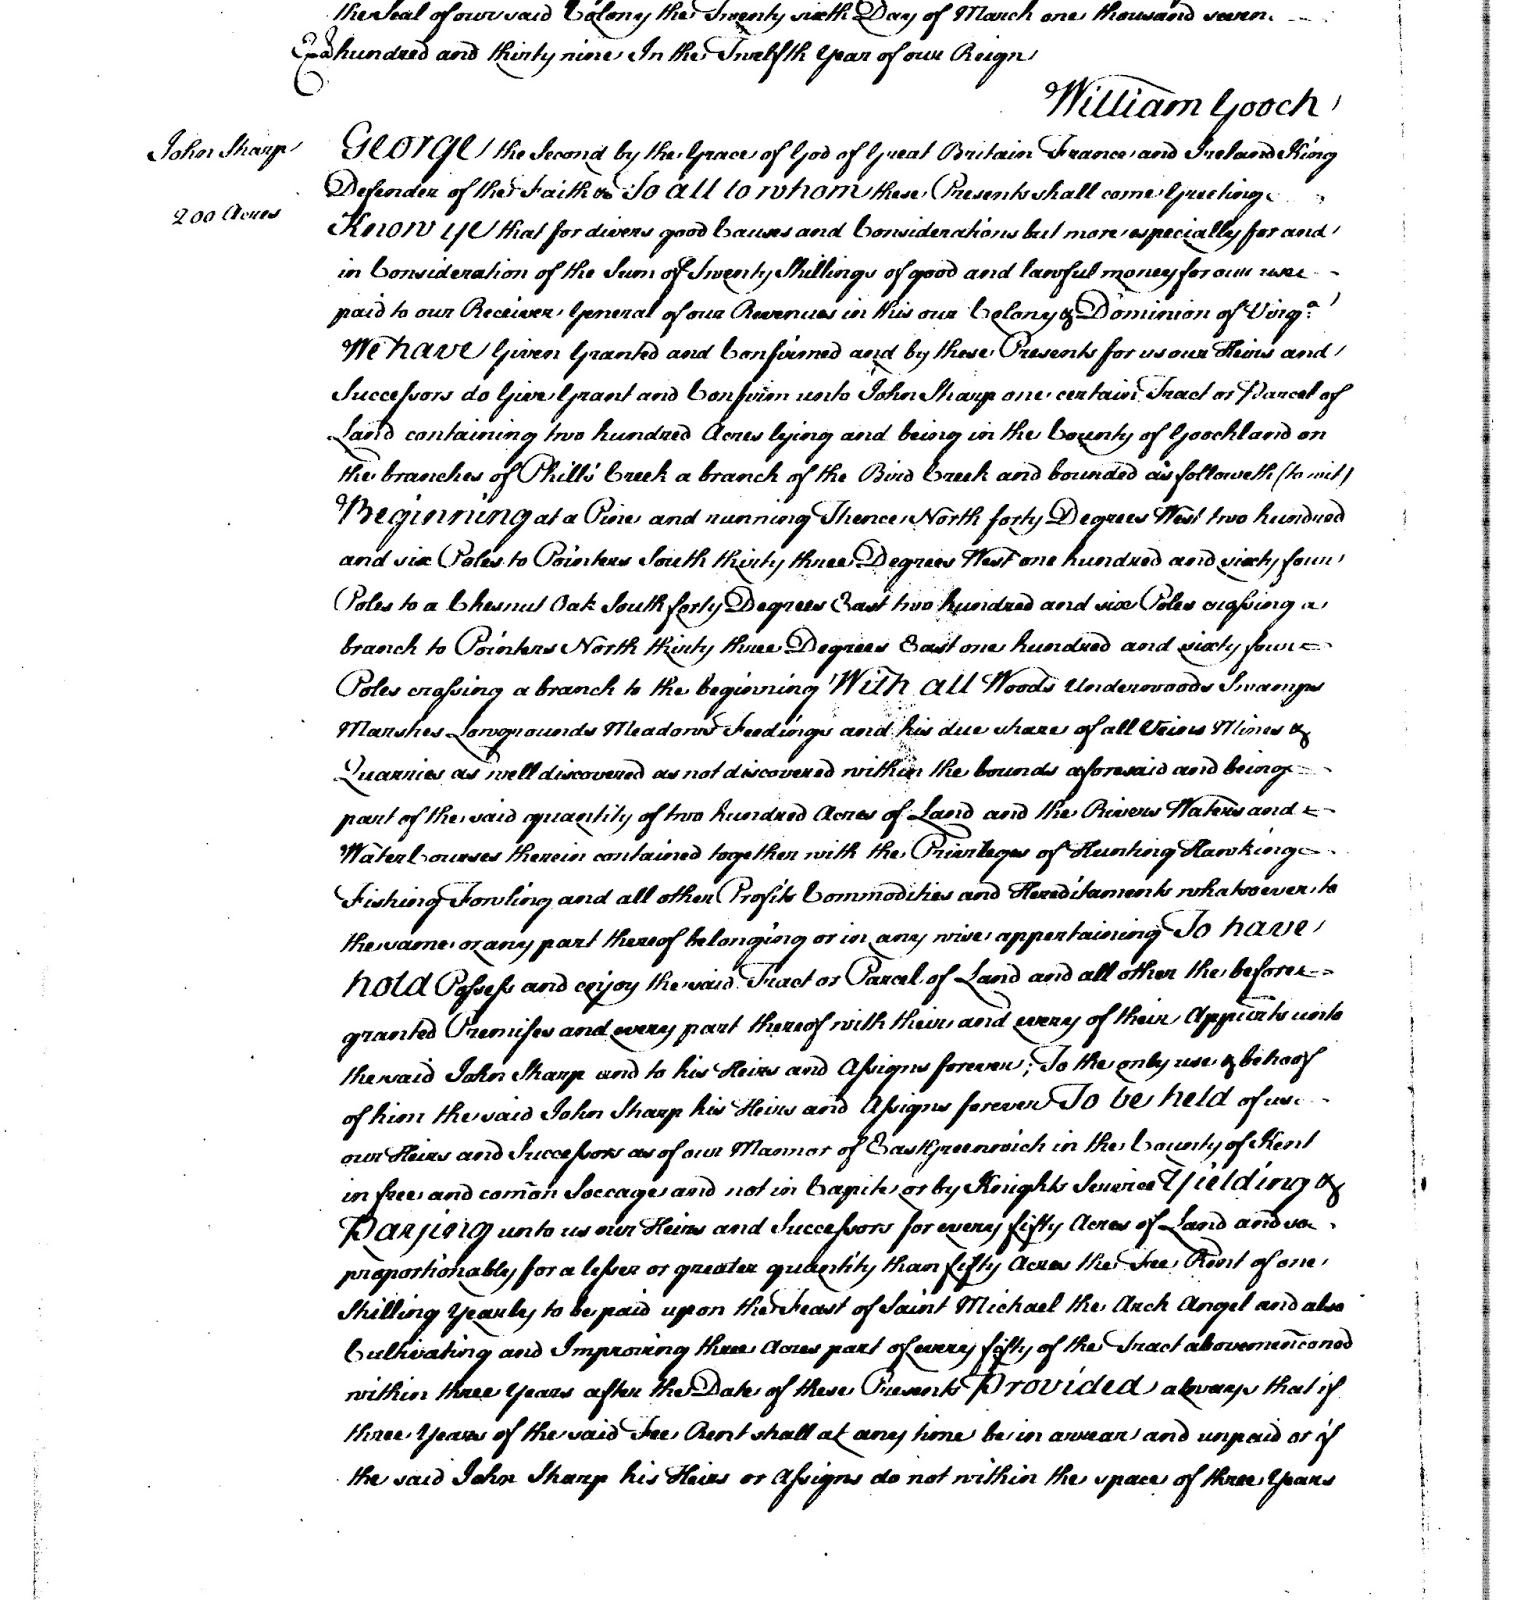 the Seal of our said Colony the Twenty sixth Day of March one thousand seven
hundred and thirty nine In the Twelfth Year of our Reign
William Gooch
John Sharp
200 Acres
George the Second by the Grace of God of Great Britain France and Ireland King
Defender of the Faith &c To all to whom these Presents shall come Greeting
Know ye that for divers good Causes and Considerations but more especially for and
in Consideration of the Sum of Twenty Shillings of good and lawful money for our use
paid to our Receiver General of our Revenues in this our Colony & Dominion of Virga
We have Given Granted and Confirmed and by these Presents for us our Heirs and
Successors do Give Grant and Confirm unto John Sharp one certain Tract or Parcel of
Land containing two hundred Acres lying and being in the County of Goochland on
the branches of Phill's Creek a branch of the Bird Creek and bounded as followeth (to wit)
Beginning at a Pine and running Thence North forty Degrees West two hundred
and six Poles to Pointers South thirty three Degrees West one hundred and sixty four
Poles to a Chesnut Oak South forty Degrees East two hundred and six Poles crossing a
branch to Pointers North thirty three Degrees East one hundred and sixty four
Poles crossing a branch to the beginning With all Woods Underwoods Swamps
Marshes Lowgrounds Meadows Feedings and his due share of all Veins Mines &
Quarries as well discovered as not discovered within the bounds aforesaid and being
part of the said quantity of two hundred Acres of Land and the Rivers Waters and
Water Courses therein contained together with the Privileges of Hunting Hawking
Fishing Fowling and all other Profits Commodities and Hereditaments whatsoever to
the same or any part thereof belonging or in any wise appertaining To have
hold Possess and enjoy the said Tract or Parcel of Land and all other the before
granted Premises and every part thereof with their and every of their Appurts unto
the said John Sharp and to his Heirs and Assigns forever; To the only use & behoof
of him the said John Sharp his Heirs and Assigns forever To be held of us
our Heirs and Successors as of our Mannor of East Greenwich in the County of Kent
in free and comon Soccage and not in Capite or by Knights Service Yielding &
Paying unto us our Heirs and Successors for every fifty Acres of Land and so
proportionably for a lesser or greater quantity than fifty Acres the Fee Rent of one
Shilling Yearly to be paid upon the Feast of Saint Michael the Arch Angel and also
Cultivating and Improving three Acres part of every fifty of the Tract abovemenconed
within three Years after the Date of these Presents Provided always that if
three Years of the said Fee Rent shall at any time be in arrear and unpaid or if
the said John Sharp his Heirs or Assigns do not within the space of three Years